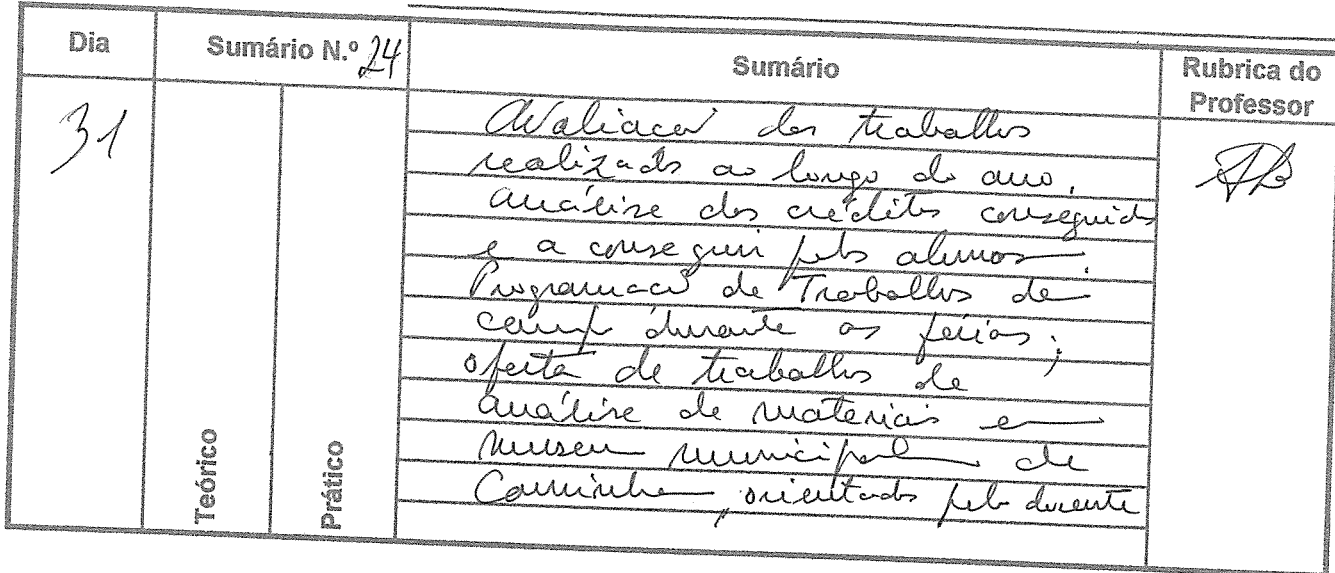 Dia
Sumário N.º 24
Sumário
Rubrica do
Professor
31
Avaliação dos trabalhos
realizados ao longo do ano.
análise dos créditos conseguidos
e a conseguir pelos alunos.
Programação de Trabalhos de
campo durante as férias;
oferta de trabalhos de
análise de materiais em
museu municipal de
Caminha, orientados pelo docente
Teórico
Prático